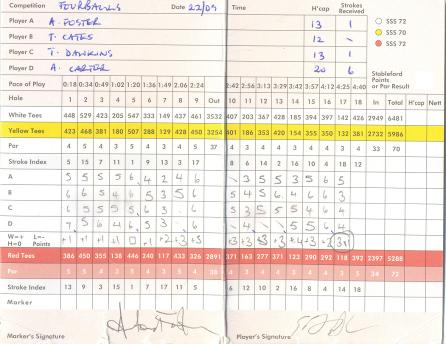 Competition FOURBALLS Date 22/09 Time H'cap Strokes Received
Player A A. FOSTER 13 1 SSS 72
Player B T. CATES 12 - SSS 70
Player C T. DAWKINS 13 1 SSS 72
Player D A. CARTER 20 6 Stableford Points or Par Result
Pace of Play 0:18 0:34 0:49 1:02 1:20 1:36 1:49 2:06 2:24 2:42 2:56 3:13 3:29 3:42 3:57 4:12 4:25 4:40
Hole 1 2 3 4 5 6 7 8 9 Out 10 11 12 13 14 15 16 17 18 In Total H'cap Nett
White Tees 448 529 423 205 547 333 149 437 461 3532 407 203 367 428 185 394 367 172 426 2949 6481
Yellow Tees 423 468 381 180 507 288 129 428 450 3254 401 186 353 420 154 355 350 132 381 2732 5986
Par 4 5 4 3 5 4 3 4 5 37 4 3 4 4 3 4 4 3 4 33 70
Stroke Index 5 15 7 11 1 9 13 3 17 8 6 14 2 16 10 4 18 12
A 5 5 5 5 6 4 2 4 6 - 3 5 5 3 5 6 5
B 6 6 5 4 6 5 3 5 6 5 4 5 6 4 6 6 3
C 6 5 5 5 5 6 3 . 6 5 3 5 5 5 5 4 6 4
D 7 5 6 4 6 5 3 . 6 - 4 - . 5 5 6 4
W=+ L=- H=0 Points +1 +1 +1 +1 0 +1 +2 +3 +3 +3 +3 +3 +3 +4 +3 +2 3+1
Red Tees 386 450 355 138 446 240 117 433 326 2891 371 163 277 371 123 290 292 118 392 2397 5288
Par 5 5 4 3 5 4 3 5 4 38 4 3 4 4 3 4 4 3 5 34 72
Stroke Index 13 9 3 15 1 7 17 5 11 6 12 10 2 16 4 8 14 18
Marker
Marker's Signature Player's Signature